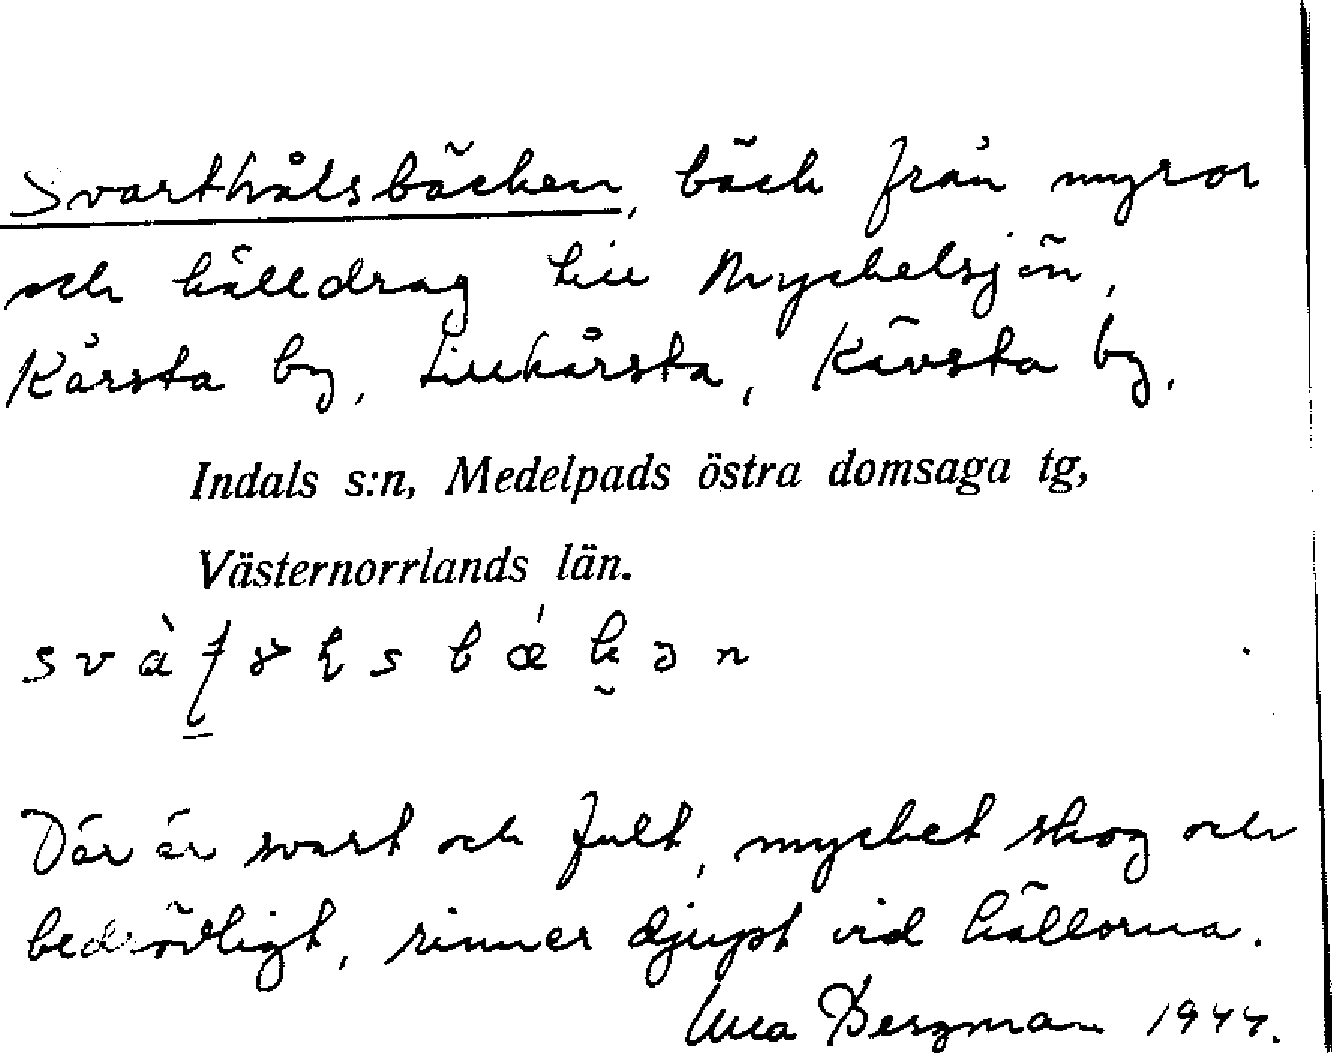 Svarthålsbäcken, bäck från myror
och källdrag till Myckelsjön,
Kårsta by, Lillkårsta, Kävsta by,
Indals s:n, Medelpads östra domsaga tg,
Västernorrlands län.
Där är svart och fult, mycket skog och
bedrövligt, rinner djupt vid källorna.
Bergman 1944.